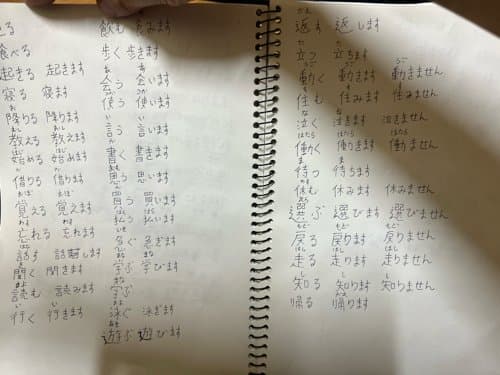 食べる
起きる 起きます
寝る 寝ます
降りる 降ります
教える 教えます
始める 始めます
借りる 借ります
覚える 覚えます
忘れる 忘れます
話す 話します
聞く 聞きます
読む 読みます
行く 行きます
飲む 飲みます
歩く 歩きます
会う 会います
使う 使います
言う 言います
書く 書きます
思う 思います
買う 買います
払う 払います
急ぐ 急ぎます
学ぶ 学びます
学ぶ
泳ぐ 泳ぎます
遊ぶ 遊びます
返す 返します
立つ 立ちます
動く 動きます 動きません
住む 住みます 住みません
泣く 泣きます 泣きません
働く 働きます 働ません
待つ 待ちます
休む 休みます 休みません
選ぶ 選びます 選びません
戻る 戻ります 戻りません
走る 走ります 走りません
知る 知ります 知りません
帰る 帰ります